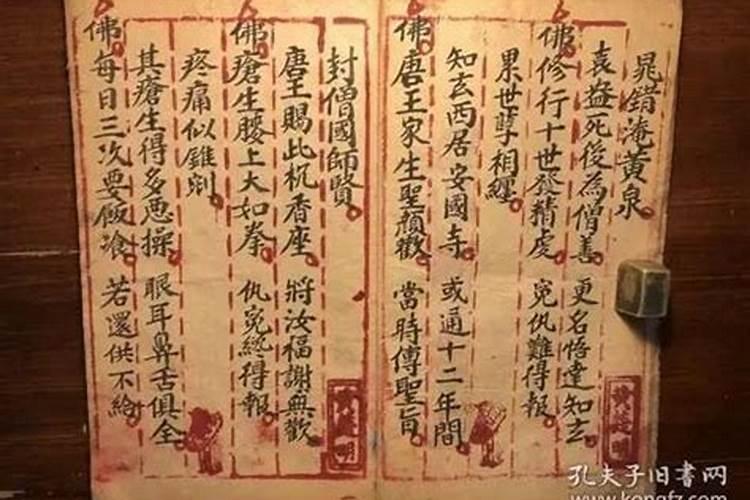 晁錯淹黃泉
袁盎死後為僧善 更名悟達知玄
佛修行十世發精虔 冤仇難得報
累世孽相纏
知玄西居安國寺 或通十二年間
佛唐王家生聖顏歡 當時傳聖旨
封僧國師賢
唐王賜此机香座 將汝福謝無歡
佛瘡生腰上大如拳 仇冤終得報
疼痛似錐剜
其瘡生得多惡操 眼耳鼻舌俱全
佛每日三次要飯飡 若還供不給
孔夫子旧书网
www.kongfz.com